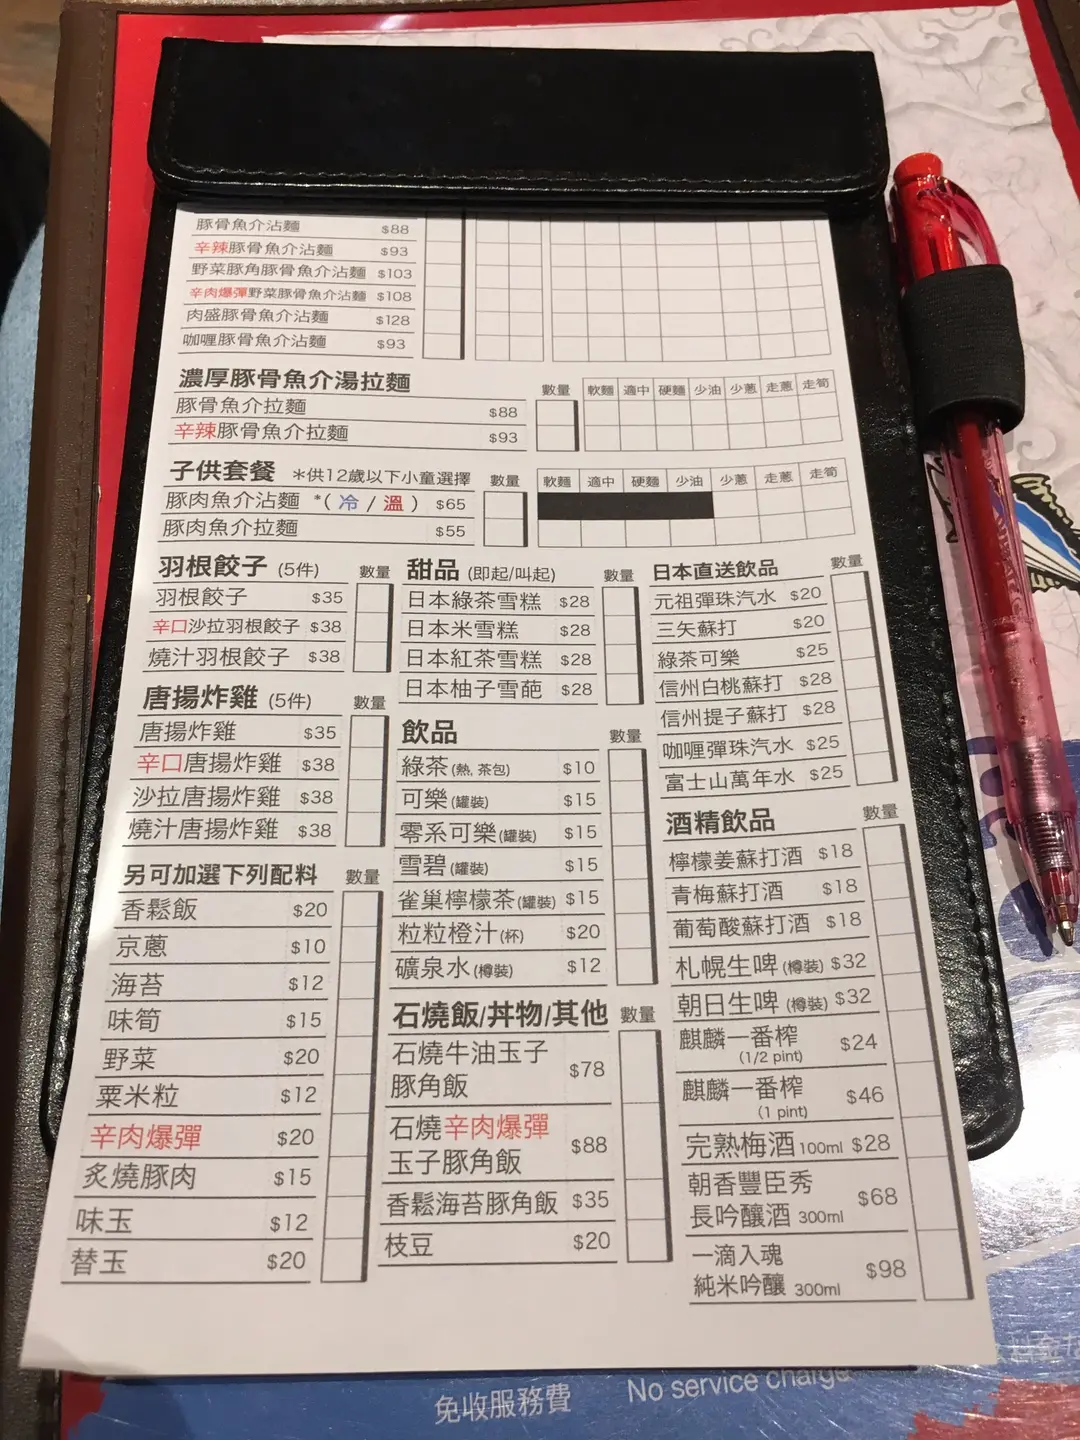 豚骨魚介沾麵 $88
辛辣豚骨魚介沾麵 $93
野菜豚角豚骨魚介沾麵 $103
辛肉爆彈野菜豚骨魚介沾麵 $108
肉盛豚骨魚介沾麵 $128
咖喱豚骨魚介沾麵 $93
濃厚豚骨魚介湯拉麵 數量 軟麵 適中 硬麵 少油 少蔥 走蔥 走筍
豚骨魚介拉麵 $88
辛辣豚骨魚介拉麵 $93
子供套餐 *供12歲以下小童選擇 數量 軟麵 適中 硬麵 少油 少蔥 走蔥 走筍
豚肉魚介沾麵 *(冷/溫) $65
豚肉魚介拉麵 $55
羽根餃子 (5件) 數量
羽根餃子 $35
辛口沙拉羽根餃子 $38
燒汁羽根餃子 $38
唐揚炸雞 (5件) 數量
唐揚炸雞 $35
辛口唐揚炸雞 $38
沙拉唐揚炸雞 $38
燒汁唐揚炸雞 $38
另可加選下列配料 數量
香鬆飯 $20
京蔥 $10
海苔 $12
味筍 $15
野菜 $20
粟米粒 $12
辛肉爆彈 $20
炙燒豚肉 $15
味玉 $12
替玉 $20
甜品 (即起/叫起) 數量
日本綠茶雪糕 $28
日本米雪糕 $28
日本紅茶雪糕 $28
日本柚子雪葩 $28
飲品 數量
綠茶(熱, 茶包) $10
可樂(罐裝) $15
零系可樂(罐裝) $15
雪碧(罐裝) $15
雀巢檸檬茶(罐裝) $15
粒粒橙汁(杯) $20
礦泉水(樽裝) $12
石燒飯/丼物/其他 數量
石燒牛油玉子
豚角飯 $78
石燒辛肉爆彈
玉子豚角飯 $88
香鬆海苔豚角飯 $35
枝豆 $20
日本直送飲品 數量
元祖彈珠汽水 $20
三矢蘇打 $20
綠茶可樂 $25
信州白桃蘇打 $28
信州提子蘇打 $28
咖喱彈珠汽水 $25
富士山萬年水 $25
酒精飲品 數量
檸檬姜蘇打酒 $18
青梅蘇打酒 $18
葡萄酸蘇打酒 $18
札幌生啤(樽裝) $32
朝日生啤(樽裝) $32
麒麟一番榨
(1/2 pint) $24
麒麟一番榨
(1 pint) $46
完熟梅酒100ml $28
朝香豐臣秀
長吟釀酒 300ml $68
一滴入魂
純米吟釀 300ml $98
免收服務費 No service charge